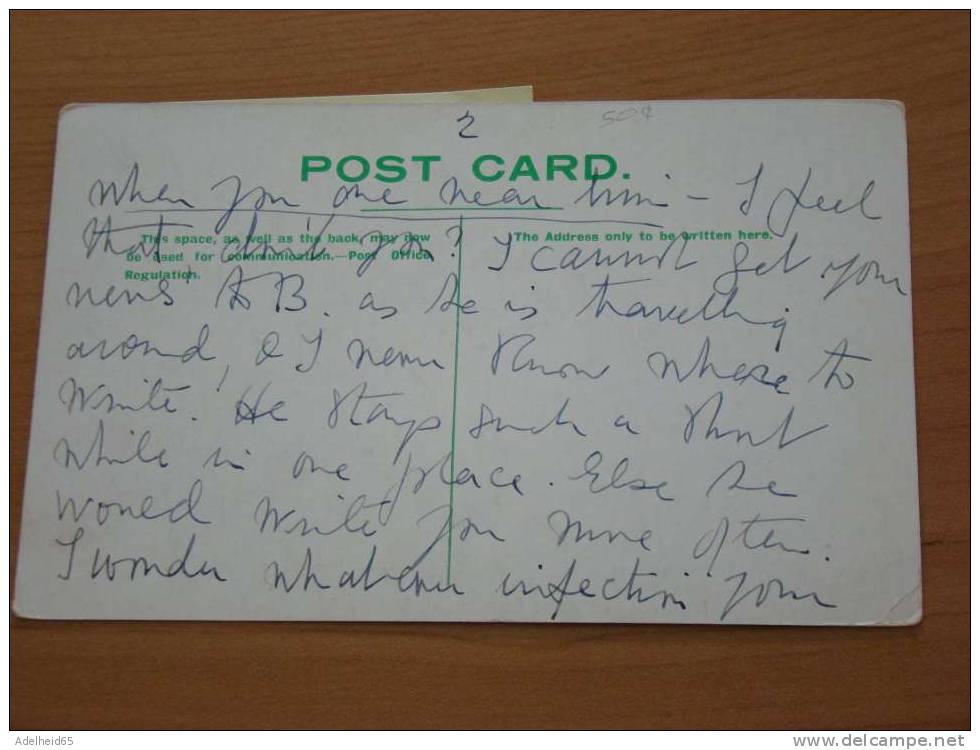 2
50¢
POST CARD.
This space, as well as the back, may now
be used for communication.—Post Office
Regulation.
The Address only to be written here.
when you are near him – I feel
that don't you? I cannot get your
news to B. as he is travelling
around, & I never know where to
write! He stays such a short
while in one place. Else he
would write you more often.
I wonder whatever infection your
Adelheid65
www.delcampe.net